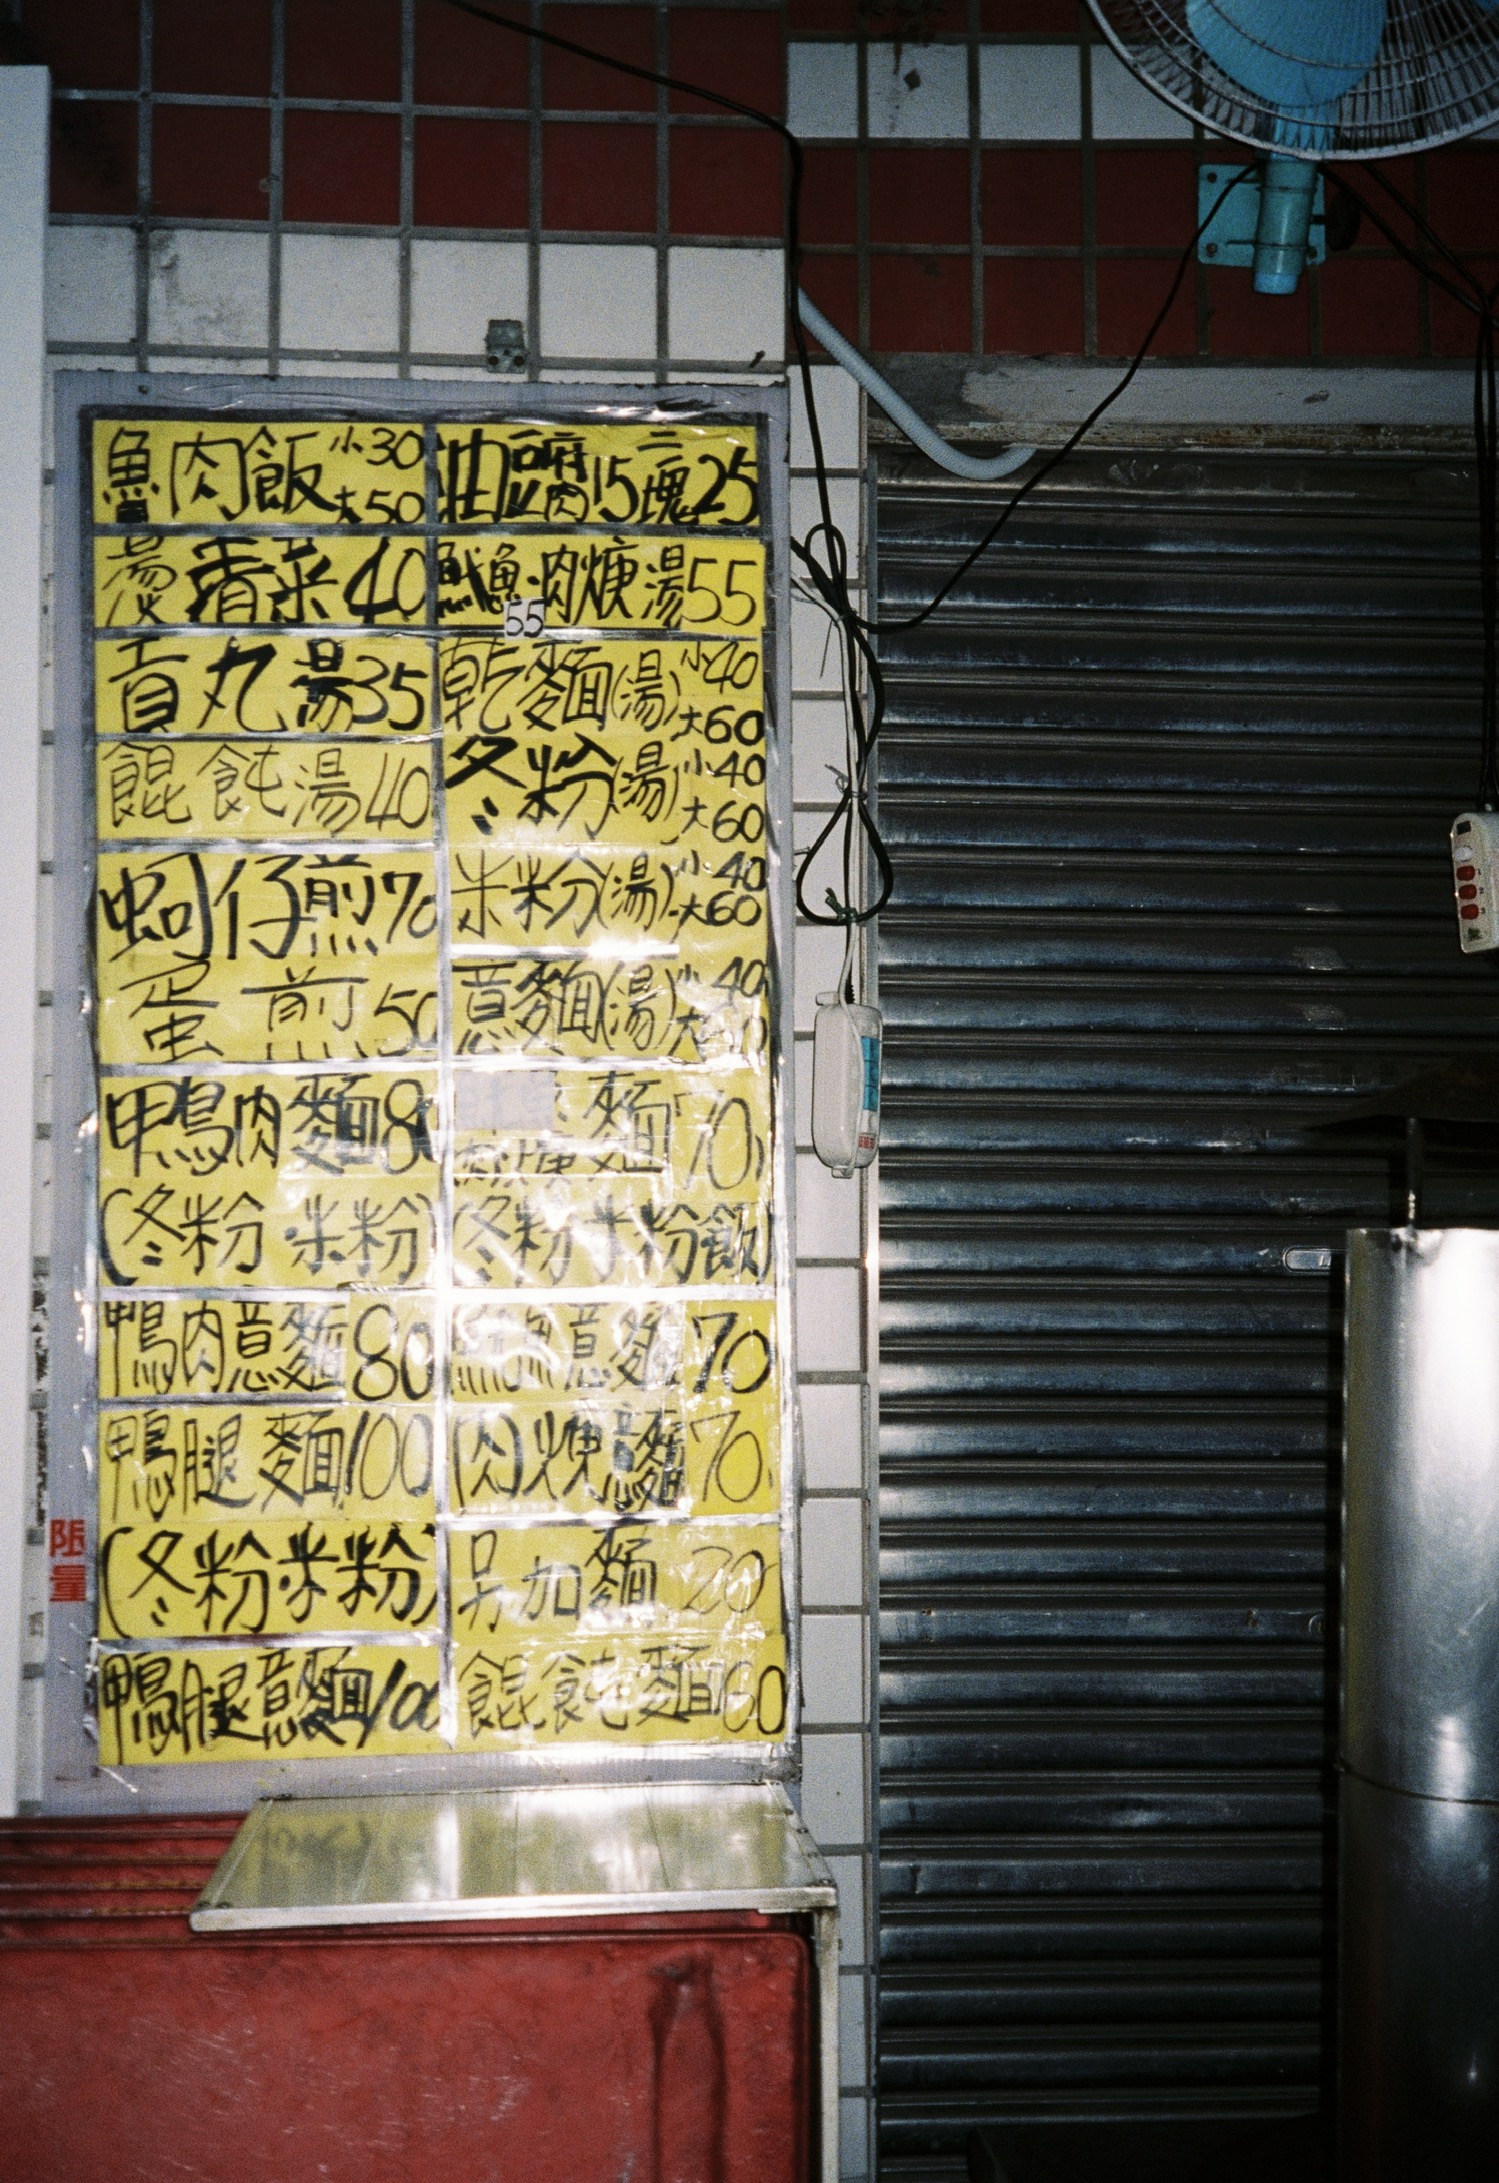 魯肉飯 小30 大50
燙青菜40
貢丸湯35
餛飩湯40
蚵仔煎70
蛋煎50
鴨肉麵80
(冬粉·米粉)
鴨肉意麵80
鴨腿麵100
(冬粉·米粉)
鴨腿意麵100
油豆腐15 二塊25
魷魚·肉焿湯55
55
乾麵(湯)小40 大60
冬粉(湯)小40 大60
米粉(湯)小40 大60
意麵(湯)小40 大
麵70
(冬粉米粉飯)
魷魚意麵70
肉焿意麵70
另加麵20
餛飩麵60
限量